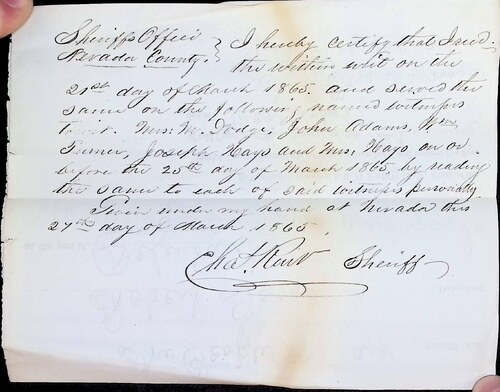 Sheriff's Office } I hereby certify that I recd.
Nevada County. } the within writ on the
21st day of March 1865. and served the
same on the following named witness
to wit. Mrs. M. Dodge, John Adams, Wm
Turner, Joseph Hays and Mrs. Hays on or
before the 25th day of March 1865, by reading
the same to each of said witness personally.
Given under my hand at Nevada this
27th day of March 1865.
Sheriff